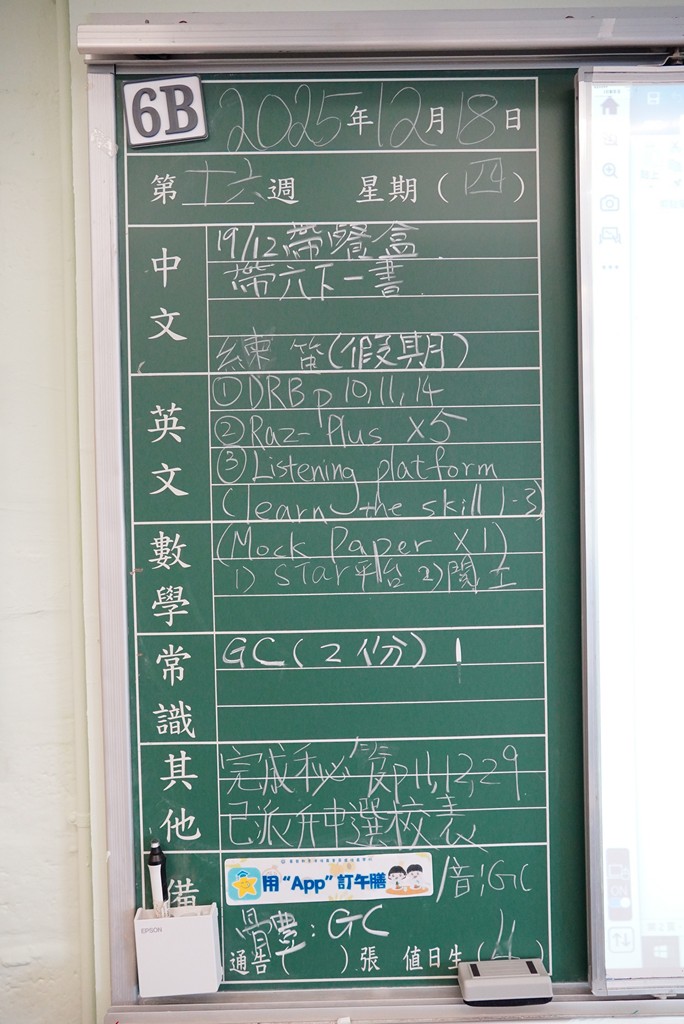 6B
2025年12月18日
第十六週 星期(四)
中文
19/12帶餐盒
帶六下一書
練笛(假期)
英文
①DRB p 10,11,14
②Raz-Plus X5
③Listening platform
(learn the skill 1-3)
數學
(Mock Paper X1)
1) STAR平台 2)閱工
常識
GC(2份)
其他
完成秘笈p11,12,29
已派升中選校表
備
用“App”訂午膳
音:GC
體:GC
通告( )張 值日生(4)
EPSON